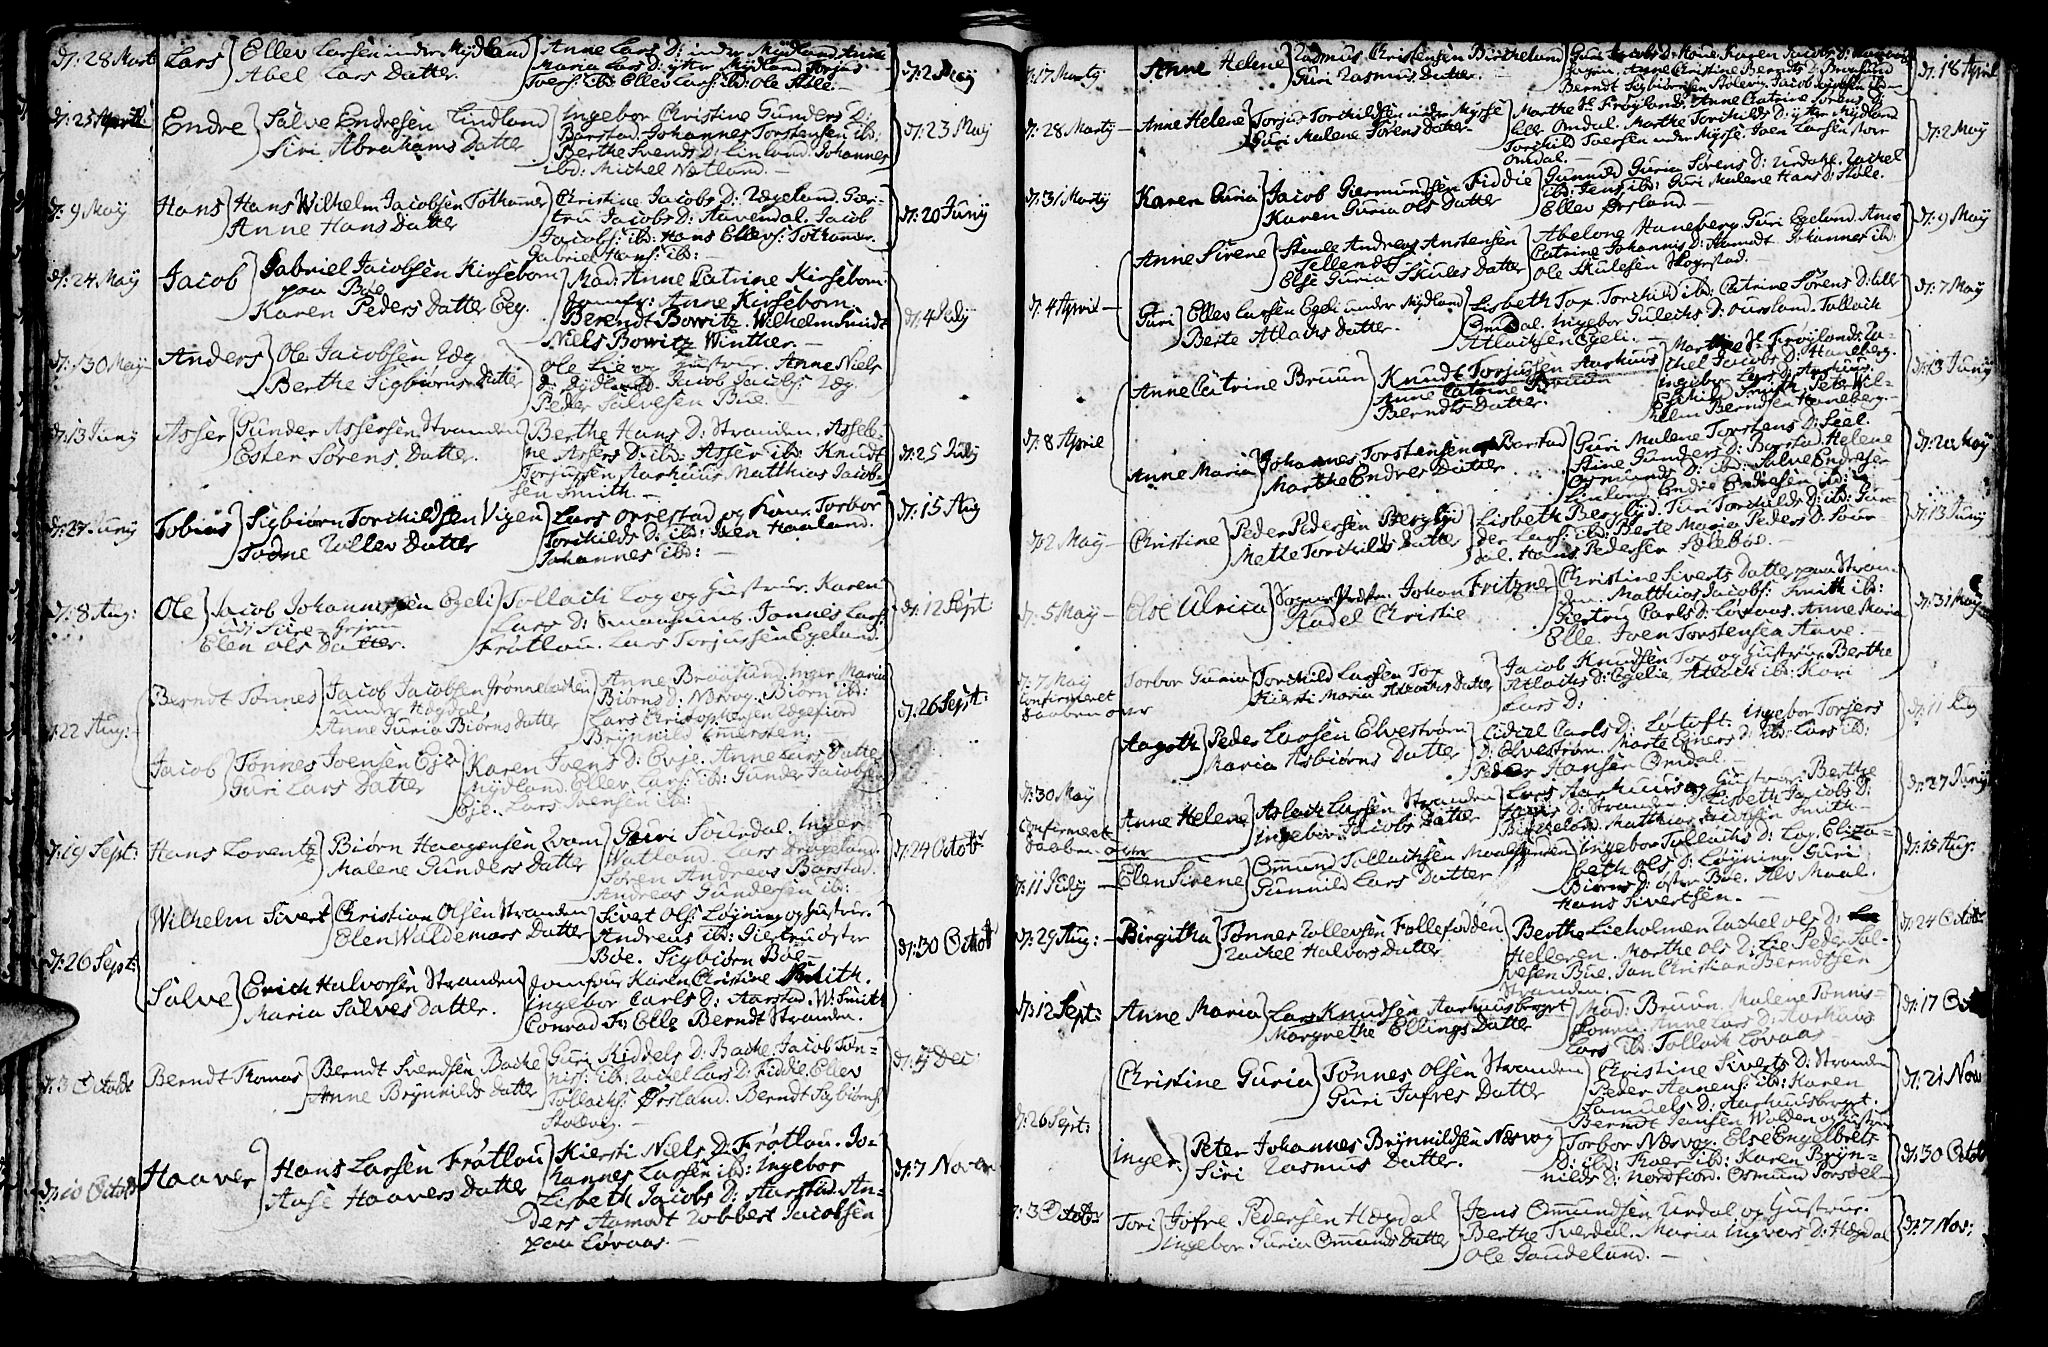 d: 28 Mart
Lars
Ellev Larsen inder Mydland
Abel Lars Datter
Anne Lars D: inder Mydland Anne
Maria Lars D: ytter Mydland Torjus
Ivers: ib: Ellev Lars: ib: Ole Støle
d: 2 Maÿ
d: 25 April
Endre
Salve Endresen Lindland
Siri Abrahams Datter
Ingebor Christine Gunders D:
Barstad. Johannes Torstensen ib:
Berthe Svends D: Linland. Johannes
ibd: Michel Netland.
d: 23 Maÿ
d: 9 Maÿ
Hans
Hans Wilhelm Jacobsen Tothamer
Anne Hans Datter
Christine Jacobs D: Rægeland. Gier-
tru Jacobs D: Aavendal. Jacob
Jacobs: ib: Hans Ellevs: Tothamar.
Gabriel Hans: ib:
d: 20 Junÿ
d: 24 Maÿ
Jacob
Gabriel Jacobsen Kirseborn
paa Bue
Karen Peders Datter Eeg.
Mad: Anne Catrine Kirseborn.
Jomfr: Anne Kirseborn.
Berendt Bowitz. Wilhelm Lundt
Niels Bowitz Winther.
d: 4 Julÿ
d: 30 Maÿ
Anders
Ole Jacobsen Eeg
Berthe Sigbiørns Datter
Ole Lie og Hustrue. Anne Niels
D: Mydland. Jacob Jacobs Eeg.
Peder Salvesen Bue.
d: 13 Junÿ
Asser
Gunder Assersen Stranden
Ester Sørens Datter.
Berthe Hans D: Stranden. Assebe-
ne Assers D: ib: Asser ib: Knudt
Torjussen Aarhuus Matthias Jacob-
sen Smith.
d: 25 Julÿ
d: 27 Junÿ
Tobias
Sigbiørn Torchildsen Vigen
Todne Rollev Datter
Lars Orrestad og Kone. Torbor
Torchilds D: ib: Iven Haaland.
Johannes ib:
d: 15 Aug
d: 8 Aug:
Ole
Jacob Johannessen Egeli
Elen Ols Datter.
Tollach Log og Hustrue. Karen
Lars D: Jonnes Lars:
Frøtlou. Lars Torjussen Egeland.
d: 12 Sept
22 Aug:
Berndt Tønnes
Jacob Jacobsen Grønnebacken
under Høgdal
Anne Guria Biørns Datter
Anne Braasund Inger Maria
Biørns D: Biørn ib:
Lars Christophersen Regefiord
Brynnild Emersten.
d. 26 Sept:
Jacob
Tønnes Ivensen Eje
Guri Lars Datter
Karen Ivens D: Evje. Anne Lars Datter
Mydland. Ellev Lars: ib: Gunder Jacobsen
Eje. Lars Ivensen ib:
d: 19 Sept:
Hans Lorentz
Biørn Haagensen Qvam
Malene Gunders Datter
Guri Souerdal. Inger
Watland. Lars Drageland.
Søren Andreas Barstad.
Andreas Gundersen ib:
d: 24 Octobr
d: 26 Sept:
Wilhelm Sivert
Christian Olsen Stranden
Elen Waldemars Datter
Sivert Ols: Løyning og Hustrue.
Andreas ib: Giertru øster
Boe. Sigbiørn Boe
d: 30 Octobr
Salve
Erich Halvorsen Stranden
Maria Salves Datter.
Jomfrue Karen Christine Smith.
Ingebor Carls D: Aarstad. W: Smith
Conrad F: Elle Berndt Stranden.
d: 3 Octobr
Berndt Thomas
Berndt Svendsen Backe
Anne Brynnilds Datter
Guri Kiddels D: Backe. Jacob Tøn-
nis: ib: Rachel Lars D: Fiddie. Ellev
Tollachs: Ørsland. Berndt Sigbiørns:
Stolevig.
d: 5 Dec:
d: 10 Octobr
Haaver
Hans Larsen Frøtlou
Aase Haavers Datter
Kiersti Niels D: Frøtlou. Jo-
hannes Larsen ib: Ingebor
Lisbeth Jacobs D: Aarstad. An-
ders Aamodt Robbert Jacobsen
paa Løvaas.
d: 7 Novem
d: 17 Martÿ
Anne Helene
Rasmus Christensen Birchelund
Guri Rasmus Datter.
Anne Christine Berndts D: Braasund
Berndt Sigbiørnsen Stolevig. Jacob ib:
d: 18 April
d: 28 Martÿ
Anne Helene
Torjus Torchildsen inder Mysse
Guri Malene Sørens Datter
Marthe St: Frøyland. Anne Catrine Sørens D:
lille Omdal. Marthe Torchilds D: ytter Mydland
Torchild Iversen inder Mysse. Iven Larsen stor
Omdal.
d: 2 Maÿ
d: 31 Martÿ
Karen Guria
Jacob Giermundsen Fiddie
Karen Guria Ols Datter
Gunnild Guria Sørens D: Urdahl. Rachel
ib: Jens ib: Guri Malene Hans D: Støle.
Ellev Ørsland.
d: 9 Maÿ
Anne Sirene
Staale Andreas Anstensen
Tellends
Else Guria Skules Datter
Abelone Haneberg. Guri Egeland. Anne
Catrine Johannis D: Aamodt. Johannes ib:
Ole Skulesen Skogestad.
d: 4 April
Guri
Ellev Larsen Egeli under Mydland
Berte Atlachs Datter.
Lisbeth Tox. Torchild ib: Catrine Sørens D: lille
Omdal. Ingebor Guleichs D: Oursland. Tollach
Atlachsen Egeli.
d: 7 Maÿ
Anne Catrine Bruun
Knudt Torjussen Aarhuus
Anne Catrine Bruun
Berndts Datter.
Marthe St: Frøyland. Ra-
chel Jacobs D: Haneberg.
Ingebor Lars D: Aarhuus.
Eschild Smith. Peter Wil-
helm Berndsen Haneberg.
d: 13 Junÿ
d: 8 April
Anne Maria
Johannes Torstensen Barstad
Marthe Endres Datter
Guri Malene Torstens D: Leel.
Stine Gunders D: Barstad. Helene
Osmunds D: ib: Salve Endresen
Linland. Endre Endresen ib:
d: 20 Maÿ
d: 2 Maÿ
Christine
Peder Pedersen Bergbÿd
Mette Torchilds Datter
Lisbeth Bergbÿd. Turi Torchilds D: ib: Gun-
der Lars: ib: Berte Maria Peders D: Sour-
dal. Hans Pedersen Sælebøe.
d: 13 Junÿ
d: 5 Maÿ
Else Ulrica
Sogne Præsten Johan Fritzne
Aadel Christie
Christine Siverts Datter paa Stran-
den. Matthias Jacobs: Smith ib:
Giertru Carls D: Lovaas. Anne Maria
Elle. Iven Torstensen Aave.
d: 31 Maÿ
d: 7 Maÿ
Confirmeret
Daaben over
Torbor Guria
Torchild Larsen Tox
Kiersti Maria Atlachs Datter
Jacob Knudsen Tox og Hustrue. Berthe
Atlachs D: Egelie Atlach ib: Kari
Lars D:
d: 11
d: 30 Maÿ
Confirmeret
Daaben over
Aagoth
Peder Larsen Elvestrøm
Maria Asbiørns Datter
Lidzel Carls D: Løtoft. Ingebor Torjers
D: Elvestrøm. Marte Ejners D: ib: Lars ib:
Peder Hansen Omdal.
d: 27 Junÿ
Anne Helene
Aslach Larsen Stranden
Ingebor Jacobs Datter
Lars Aarhuus og Hustrue. Berthe
D: Stranden. Lisbeth Jacobs D:
Birchelund. Matthias Jacobsen Smith.
d: 11 Julÿ
Elen Sirene
Omund Tollachsen Stranden
Gunnild Lars Datter
Ingebor Tollachs D: Log. Eliza-
beth Ols D: Løyning. Guri
Biørns D: øster Boe. Alv Maal.
Hans Sivertsen.
d: 15 Aug:
d: 29 Aug:
Birgitha
Tønnes Rollevsen Follesodden
Rachel Halvors Datter
Berthe Lieholmen Rachel Ols D:
Helleren. Marthe Ols D: Lie Peder Sal-
vesen Bue. Jan Christian Berndtsen
Stranden.
d: 24 Octobr
d: 12 Sept:
Anne Maria
Lars Knudsen Aarhuusbroget
Margrethe Ellings Datter
Mad: Bruun. Malene Tønnis-
Anne Lars D: Aarhuus
Lars ib: Tollach Lovaas
d: 17 Oct
d: 26 Sept:
Christine Guria
Tønnes Olsen Stranden
Guri Jofres Datter
Christine Siverts D: Stranden
Peder Aanens: ib: Karen
Samuels D: Aarhuusbroget.
Berndt Jansen Wolden og Hustrue
d: 21 Nov
Inger
Peter Johannes Brynnildsen Næsvog
Siri Rasmus Datter.
Torbor Næsvog. Else Engelbrets
D: ib: Roer ib: Karen Bryn-
nilds D: Nordfiord. Osmund Torsdel
d: 30 Octobr
d: 3 Octobr
Tori
Jofre Pedersen Hægdal
Ingebor Guria Omunds Datter
Jens Omundsen Urdal og Hustrue.
Berthe Tverdal. Maria Ingvors D: Hægdal
Ole Goudeland.
d: 7 Nov: